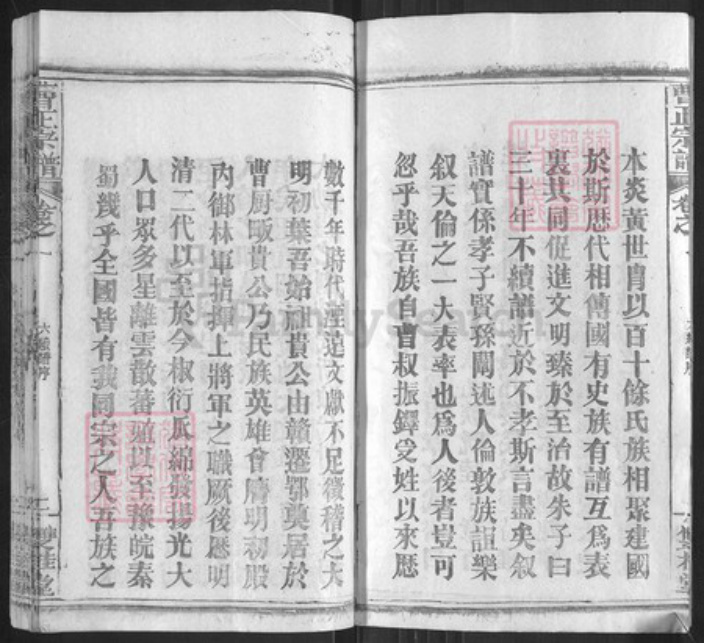 曹氏宗譜
卷之一
本炎黃世胄以百十餘氏族相聚建國
於斯歷代相傳國有史族有譜互為表
裏共同促進文明臻於至治故朱子曰
三十年不續譜近於不孝斯言盡矣叙
譜實係孝子賢孫闡述人倫敦族誼樂
叙天倫之一大表率也為人後者豈可
忽乎哉吾族自曹叔振鐸受姓以來歷
數千年時代湮遠文獻不足徵稽之大
明初葉吾始祖貴公由贛遷鄂奠居於
曹厨畈貴公乃民族英雄曾膺明初殿
內御林軍指揮上將軍之職厥後歷明
清二代以至於今椒衍瓜綿發揚光大
人口眾多星離雲散蕃殖以至豫皖秦
蜀幾乎全國皆有我同宗之人吾族之
曹氏宗譜
卷之一
六級譜序
二
雙桂堂
FamilySearch